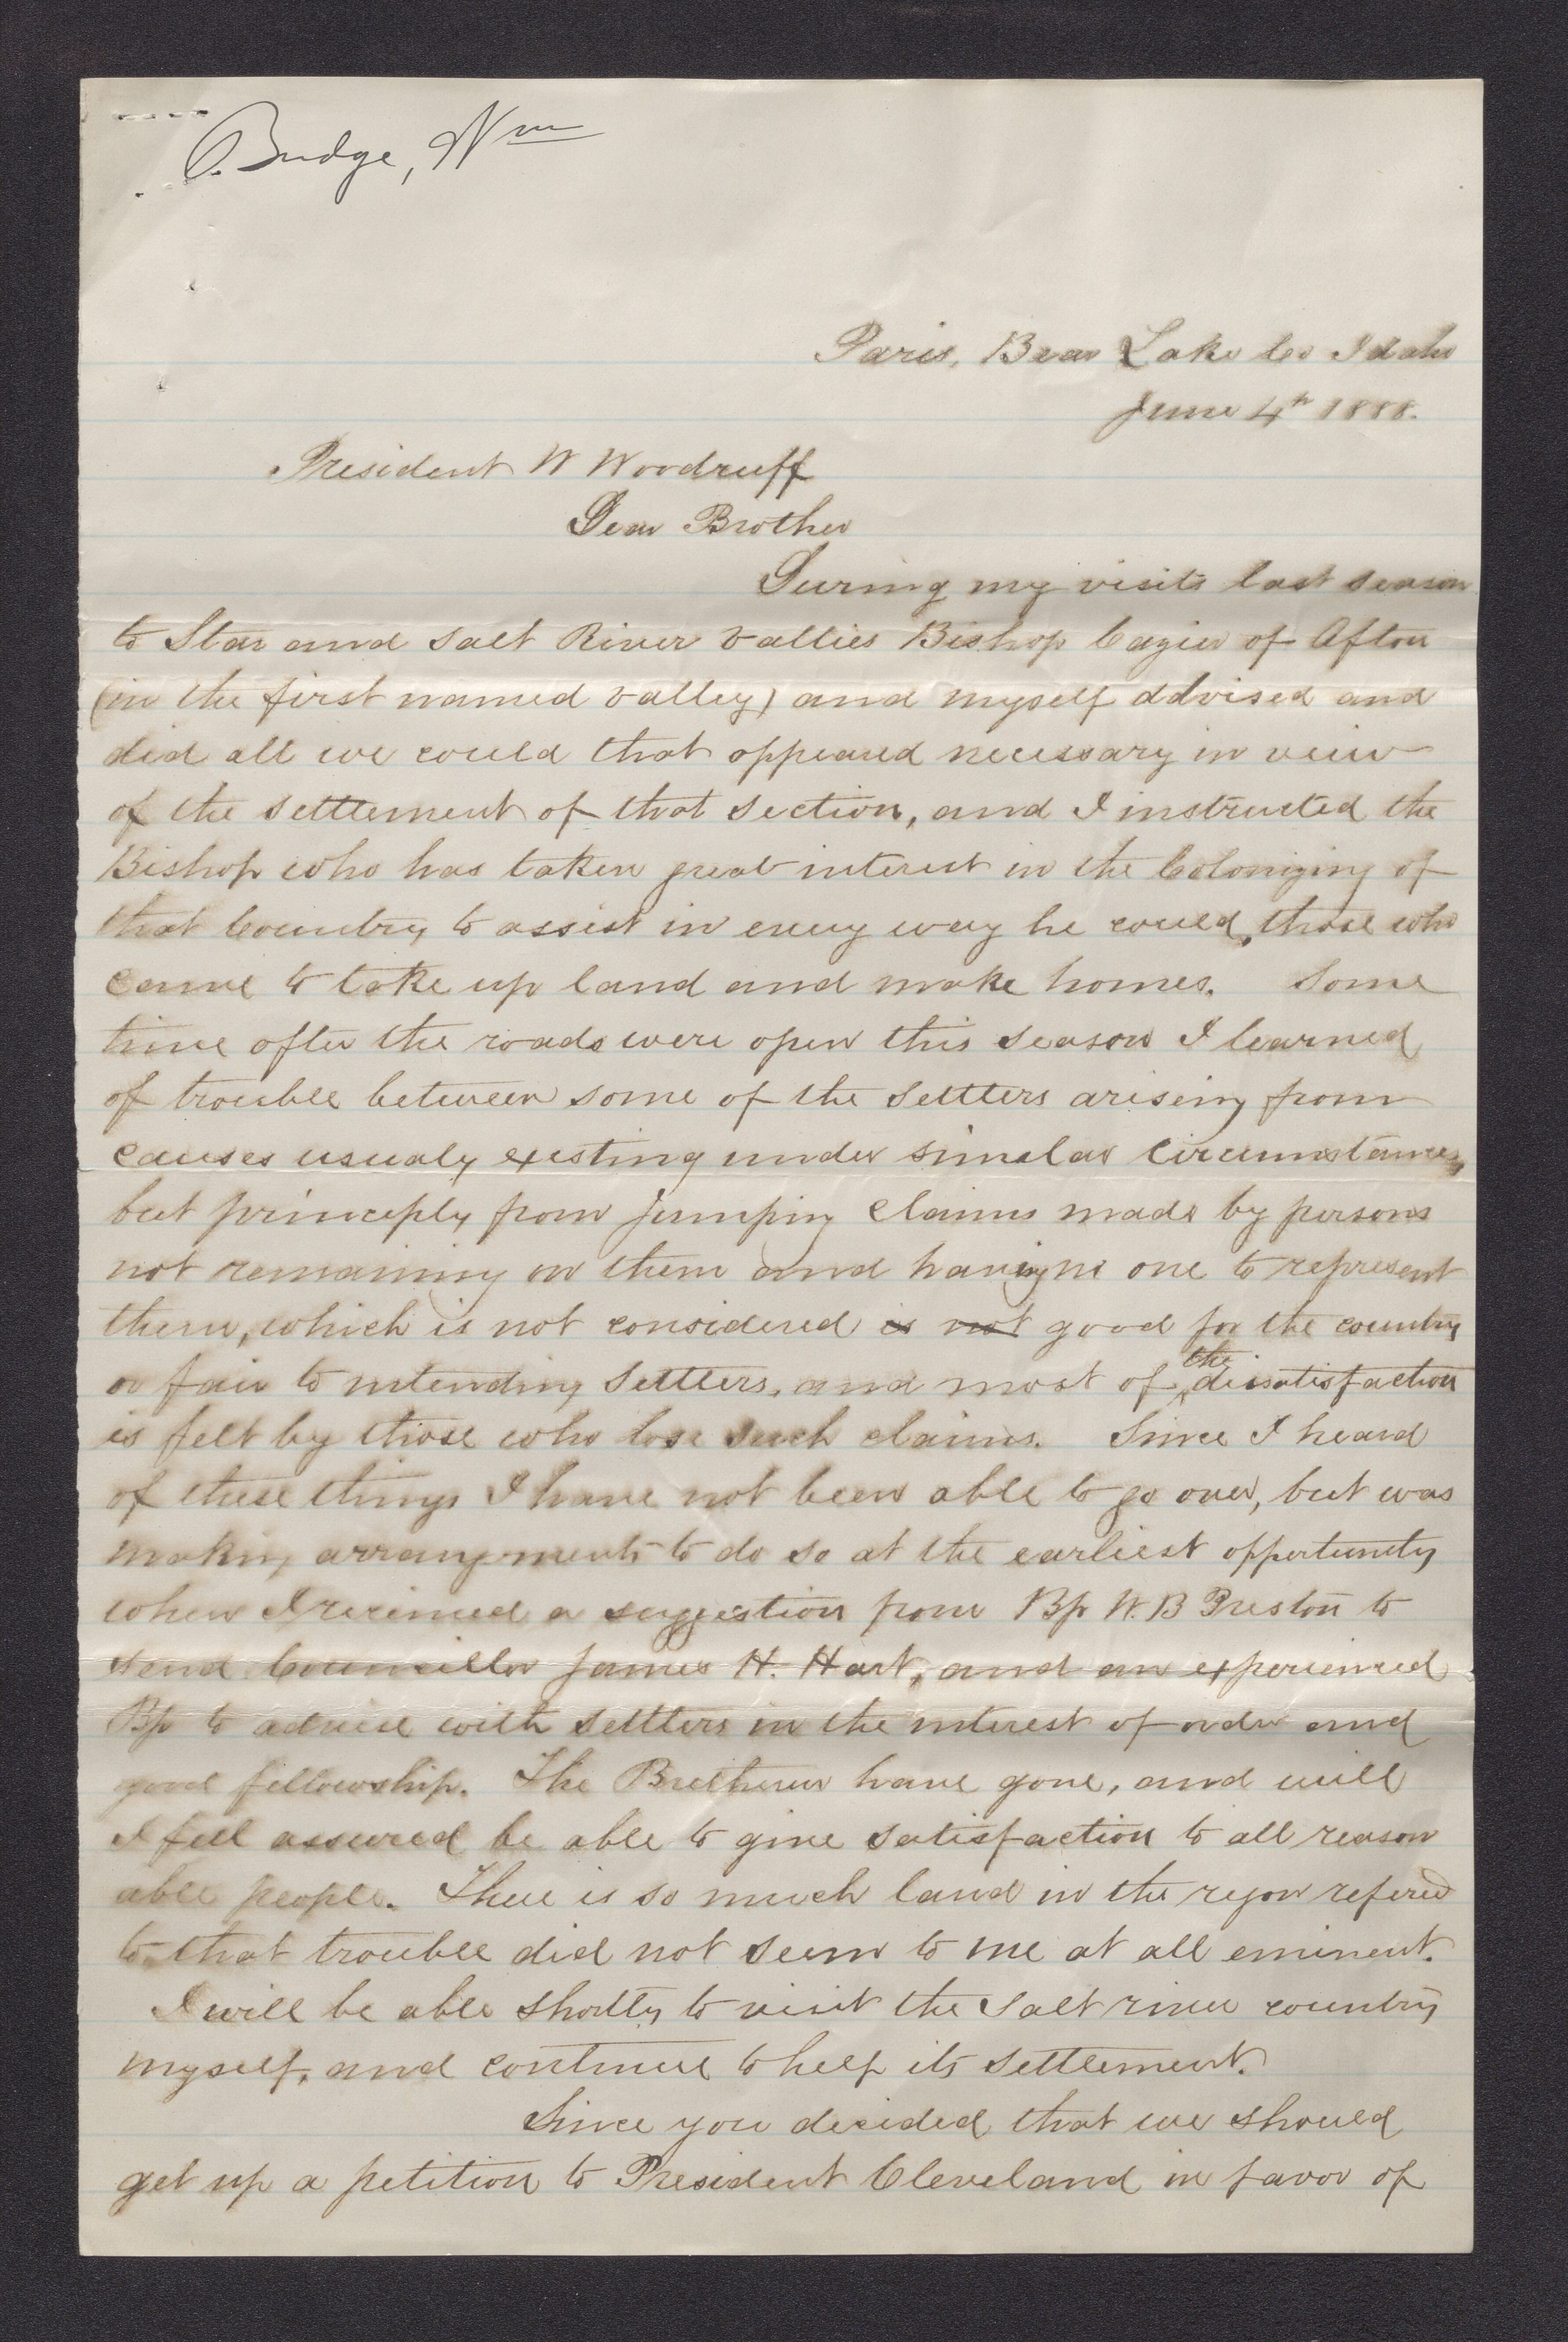 Budge, Wm
Paris, Bear Lake Co Idaho
June 4th 1888.
President W Woodruff
Dear Brother
During my visits last season
to Star and Salt River Vallies Bishop Cazier of Afton
(in the first named valley) and myself advised and
did all we could that appeared necessary in veiw
of the settlement of that section, and I instructed the
Bishop who has taken great interest in the Colonizing of
that Country to assist in every way he could, those who
came to take up land and make homes. Some
time after the roads were open this season I learned
of trouble between some of the settlers arising from
causes usualy existing under simelar circumstances,
but princeply from jumping claims made by persons
not remaining on them and having no one to represent
them, which is not considered is not good for the country
or fair to intending settlers, and most of the dissatisfaction
is felt by those who lose such claims. Since I heard
of these things I have not been able to go over, but was
making arrangements to do so at the earliest oppertunity
when I received a suggestion from Bp W. B Preston to
send Councillor James H. Hart, and an experienced
Bp to advise with settlers in the interest of order and
good fellowship. The Bretheren have gone, and will
I feel assured be able to give satisfaction to all reason
able people. There is so much land in the regon refered
to that trouble did not seem to me at all eminent.
I will be able shortly to visit the Salt river country
myself, and continue to help its settlement.
Since you decided that we should
get up a petition to President Cleveland in favor of